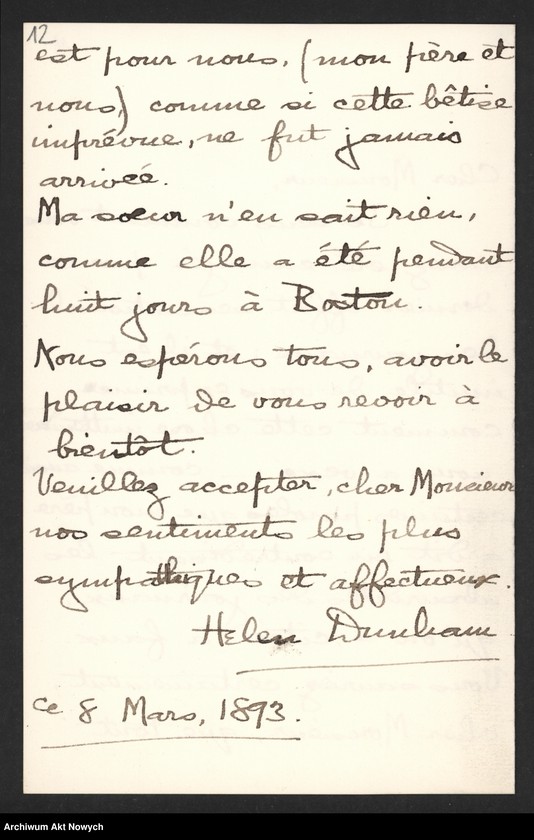 12
est pour nous, (mon père et
nous,) comme si cette bêtise
imprévue, ne fut jamais
arrivée.
Ma soeur n'en sait rien,
comme elle a été pendant
huit jours à Boston.
Nous espérons tous, avoir le
plaisir de vous revoir à
bientôt.
Veuillez accepter, cher Monsieur
nos sentiments les plus
sympathiques et affectueux.
Helen Dunham
ce 8 Mars, 1893.
Archiwum Akt Nowych